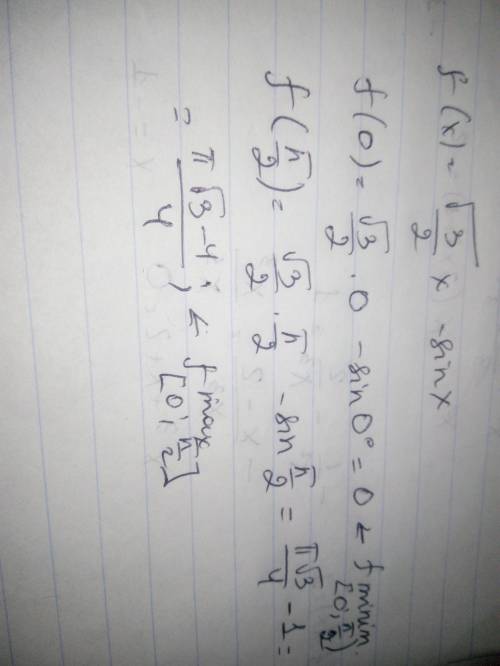 f(x) = √3/2 x - sinx
f(0) = √3/2 · 0 - sin0° = 0 ← f minim. [0; π/2]
f(π/2) = √3/2 · π/2 - sin π/2 = π√3/4 - 1 =
= π√3-4/4 ; ← f max [0; π/2]